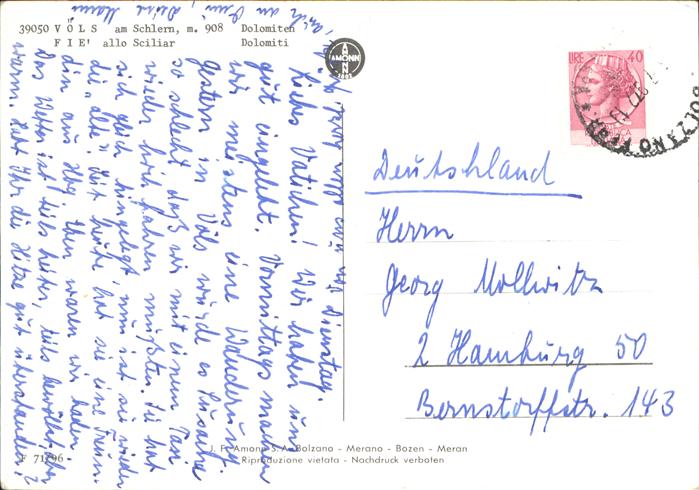 39050 VÖLS am Schlern, m. 908 Dolomiten
FIE' allo Sciliar Dolomiti
AMONN
LIRE 40
BOLZANO
Dienstag.
Liebes Vatichen! Wir haben uns
gut eingelebt. Vormittags machen
wir meistens eine Wanderung.
Gestern in Völs wurde es Susanne
so schlecht, daß wir mit einem Taxi
wieder hoch fahren mußte. Sie hat
sich gleich hingelegt, nun ist sie wieder
die „alte". Seit heute hat sie eine Freun-
din aus Hbg. Eben waren wir baden.
Das Wetter ist teils heiter, teils bewölkt, aber
warm. Habt Ihr die Hitze gut überstanden?
auch an
Deine
Deutschland
Herrn
Georg Mollwitz
2 Hamburg 50
Bernstorffstr. 143
F 71/96
J. F. Amonn S.A. Bolzano - Merano - Bozen - Meran
Riproduzione vietata - Nachdruck verboten